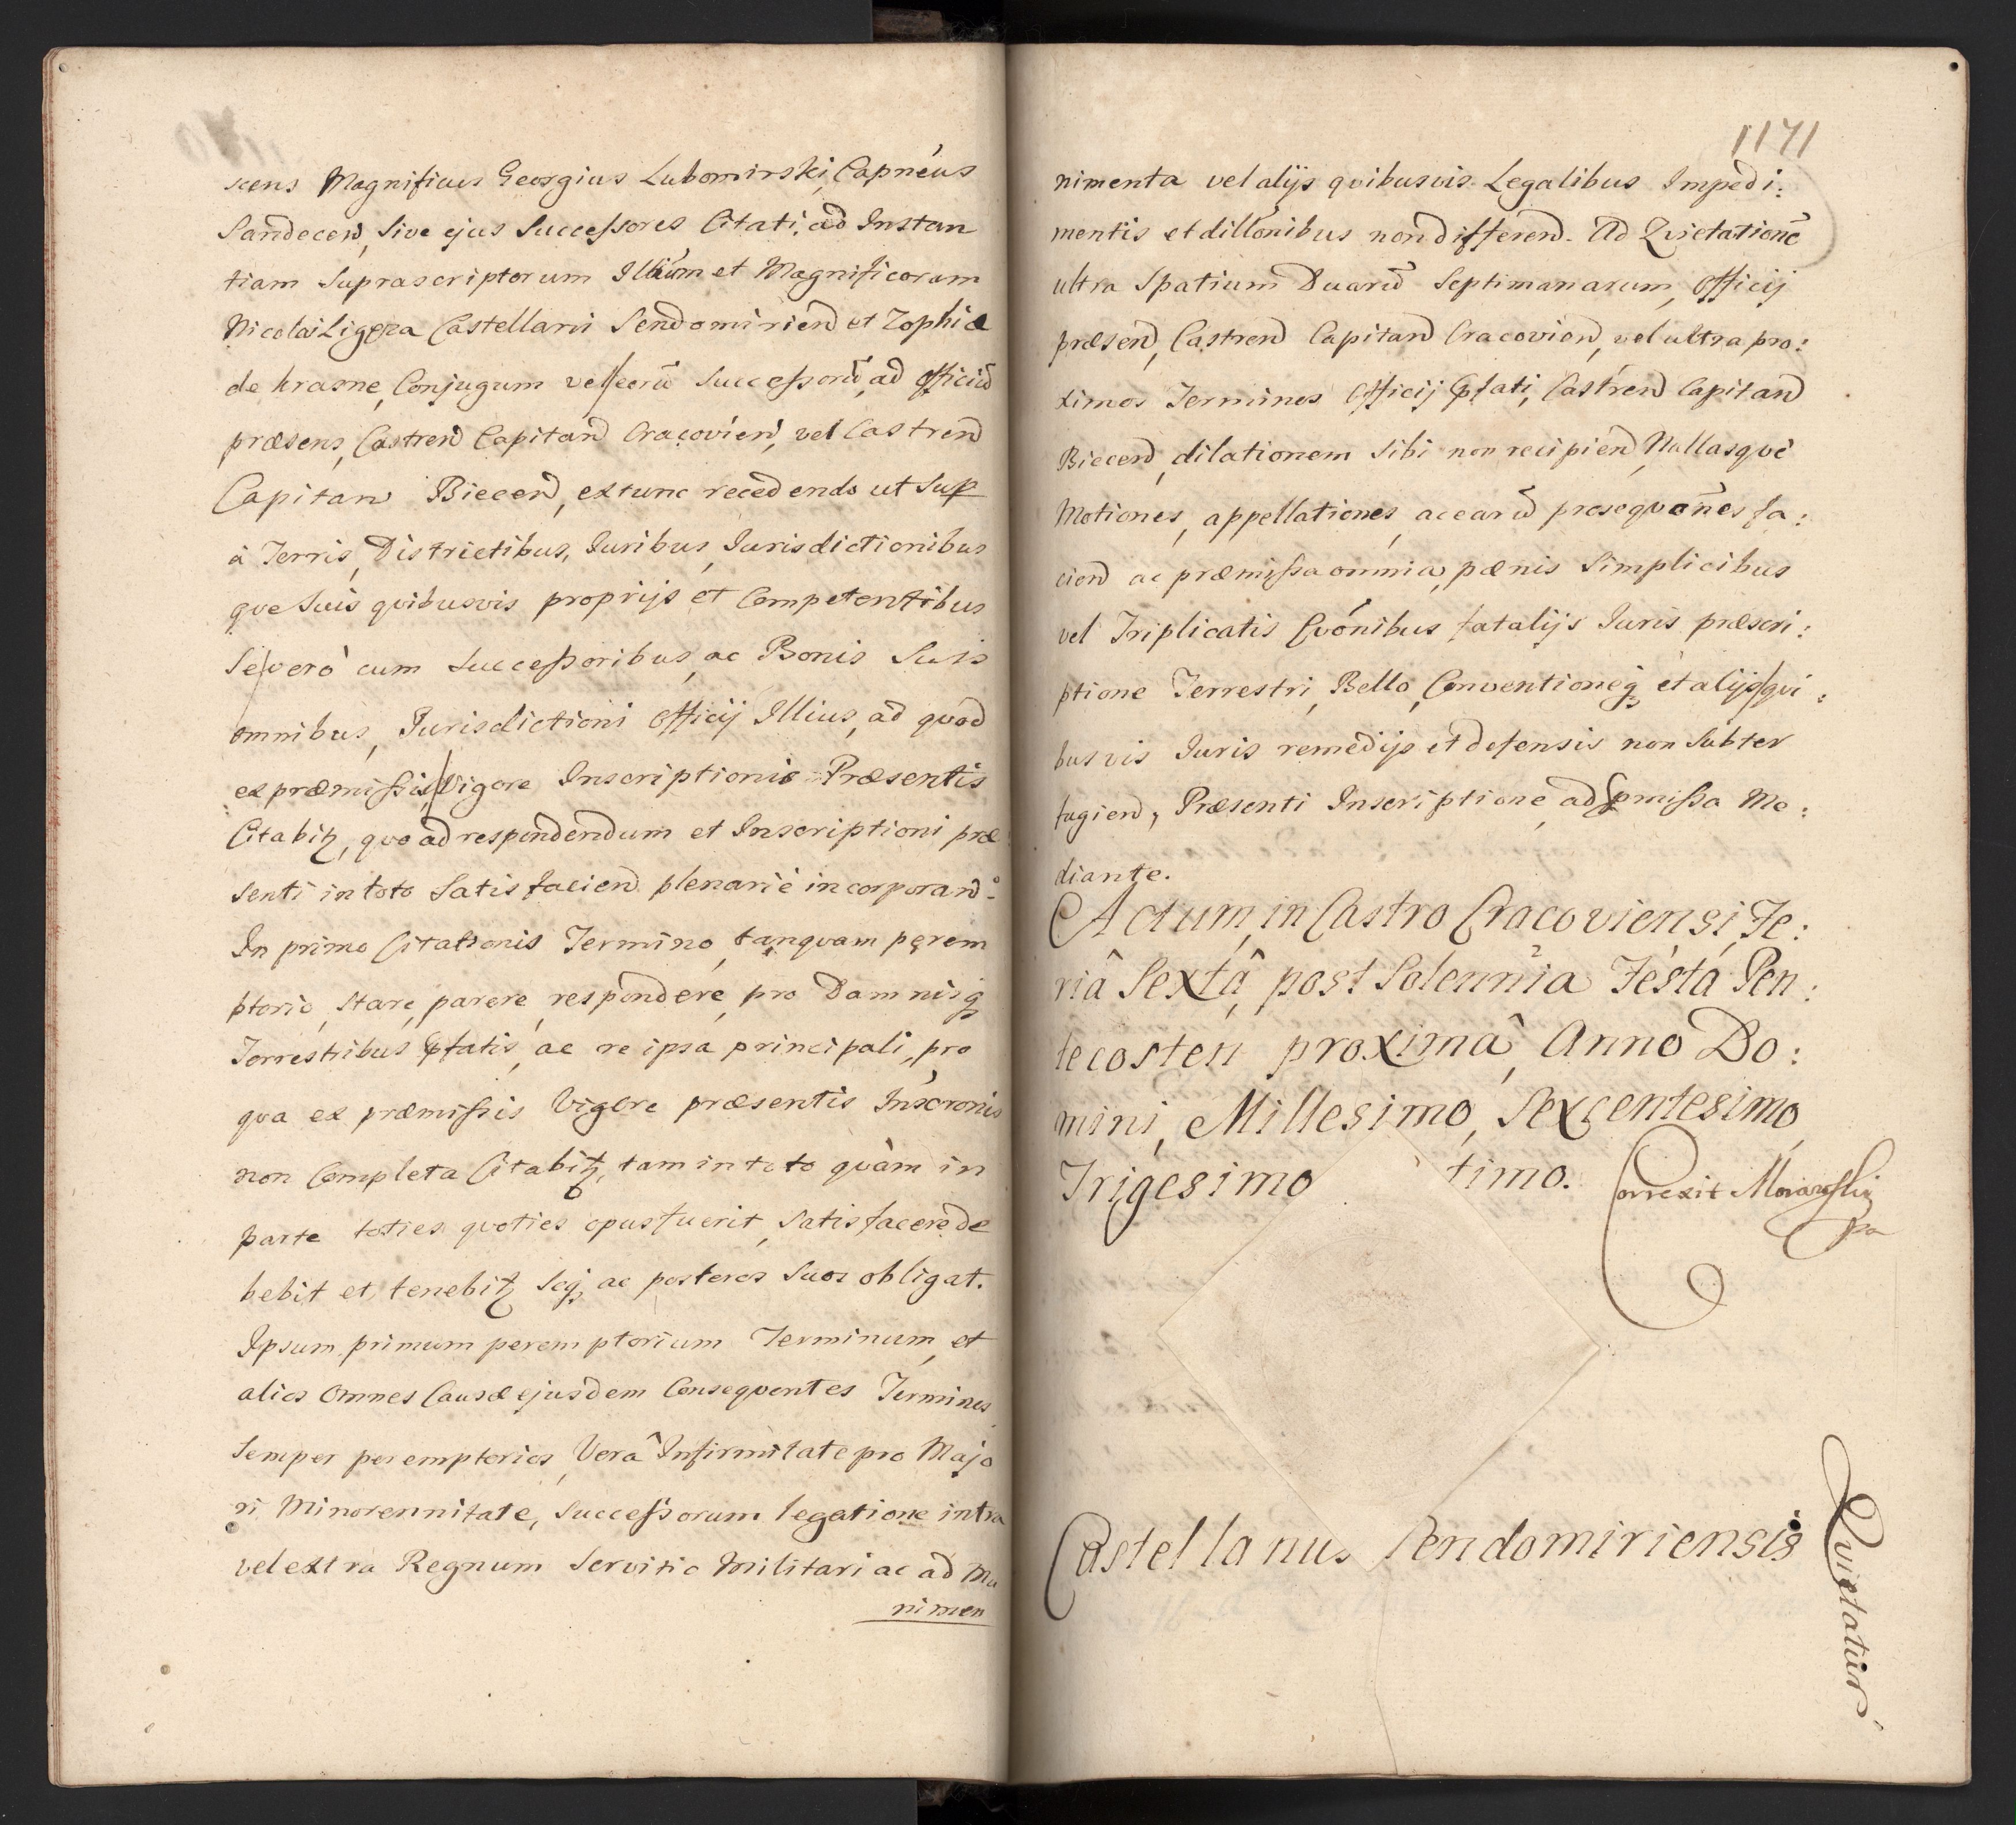 scens Magnificus Georgius Lubomirski, Capnéus
Sandecen, Sive ejus Successores Citati, ad Instan
tiam Suprascriptorum Illium et Magnificorum
Nicolai Ligęza Castellani Sendomirien et Zophiæ
de krasne, Conjugum vel eorū Successorū, ad officiū
præsens, Castren Capitan Cracovien, vel Castren
Capitan Biecen, extunc recedendo ut Sup
à Terris, Districtibus, Iuribus, Jurisdictionibus
que Suis quibusvis proprijs et Competentibus
Se vero cum Successoribus, ac Bonis Suis
omnibus, Jurisdictioni officij Illius, ad quod
ex præmissis Vigore Inscriptionis Præsentis
Citabitz, quo ad respondendum et Inscriptioni præ
senti in toto Satisfacien plenariè incorporand.
In primo Citationis Termino, tanquam perem
ptorio, stare, parere, respondere, pro Damnisq
Terrestribus pfatis, ac re ipsa principali, pro
qua ex præmissis Vigore præsentis Inscronis
non Completa Citabitz, tam in toto quàm in
parte toties quoties opus fuerit, Satisfacere de
bebit et tenebitz Seq ac posteros Suos obligat.
Ipsum primum peremptorium Terminum, et
alios Omnes Causæ ejusdem Consequentes Terminos
Semper peremptorios, Verâ Infirmitate pro Majo
ri Minorennitate, Successorum legatione intra
vel extra Regnum Servitio Militari ac ad Mu
nimen
1171
nimenta vel alijs quibusvis Legalibus Impedi:
mentis et dillonibus non differen. Ad Quietationē
ultra Spatium Duarū Septimanarum, Officij
præsen, Castren Capitan Cracovien, vel ultra pro:
ximos Terminos Officij pfati, Castren Capitan
Biecen, dilationem Sibi non recipien, Nullasque
Motiones, appellationes, ac earū prosequōnes fa:
cien ac præmissa omnia, pœnis Simplicibus
vel Triplicatis Evónibus fatalijs Iuris præscri:
ptione Terrestri, Bello, Conventioneq et alijs qui:
busvis Iuris remedijs et defensis non Subter
fugien, Præsenti Inscriptione, ad pmissa Me:
diante.
Actum, in Castro Cracoviensi, Fe:
riâ Sextâ, post Solennia Festa Pen:
tecosten proximâ, Anno Do:
mini, Millesimo, Sexcentesimo,
Trigesimo timo. Correxit
pa
Castellanus Sendomiriensis
Quietatur